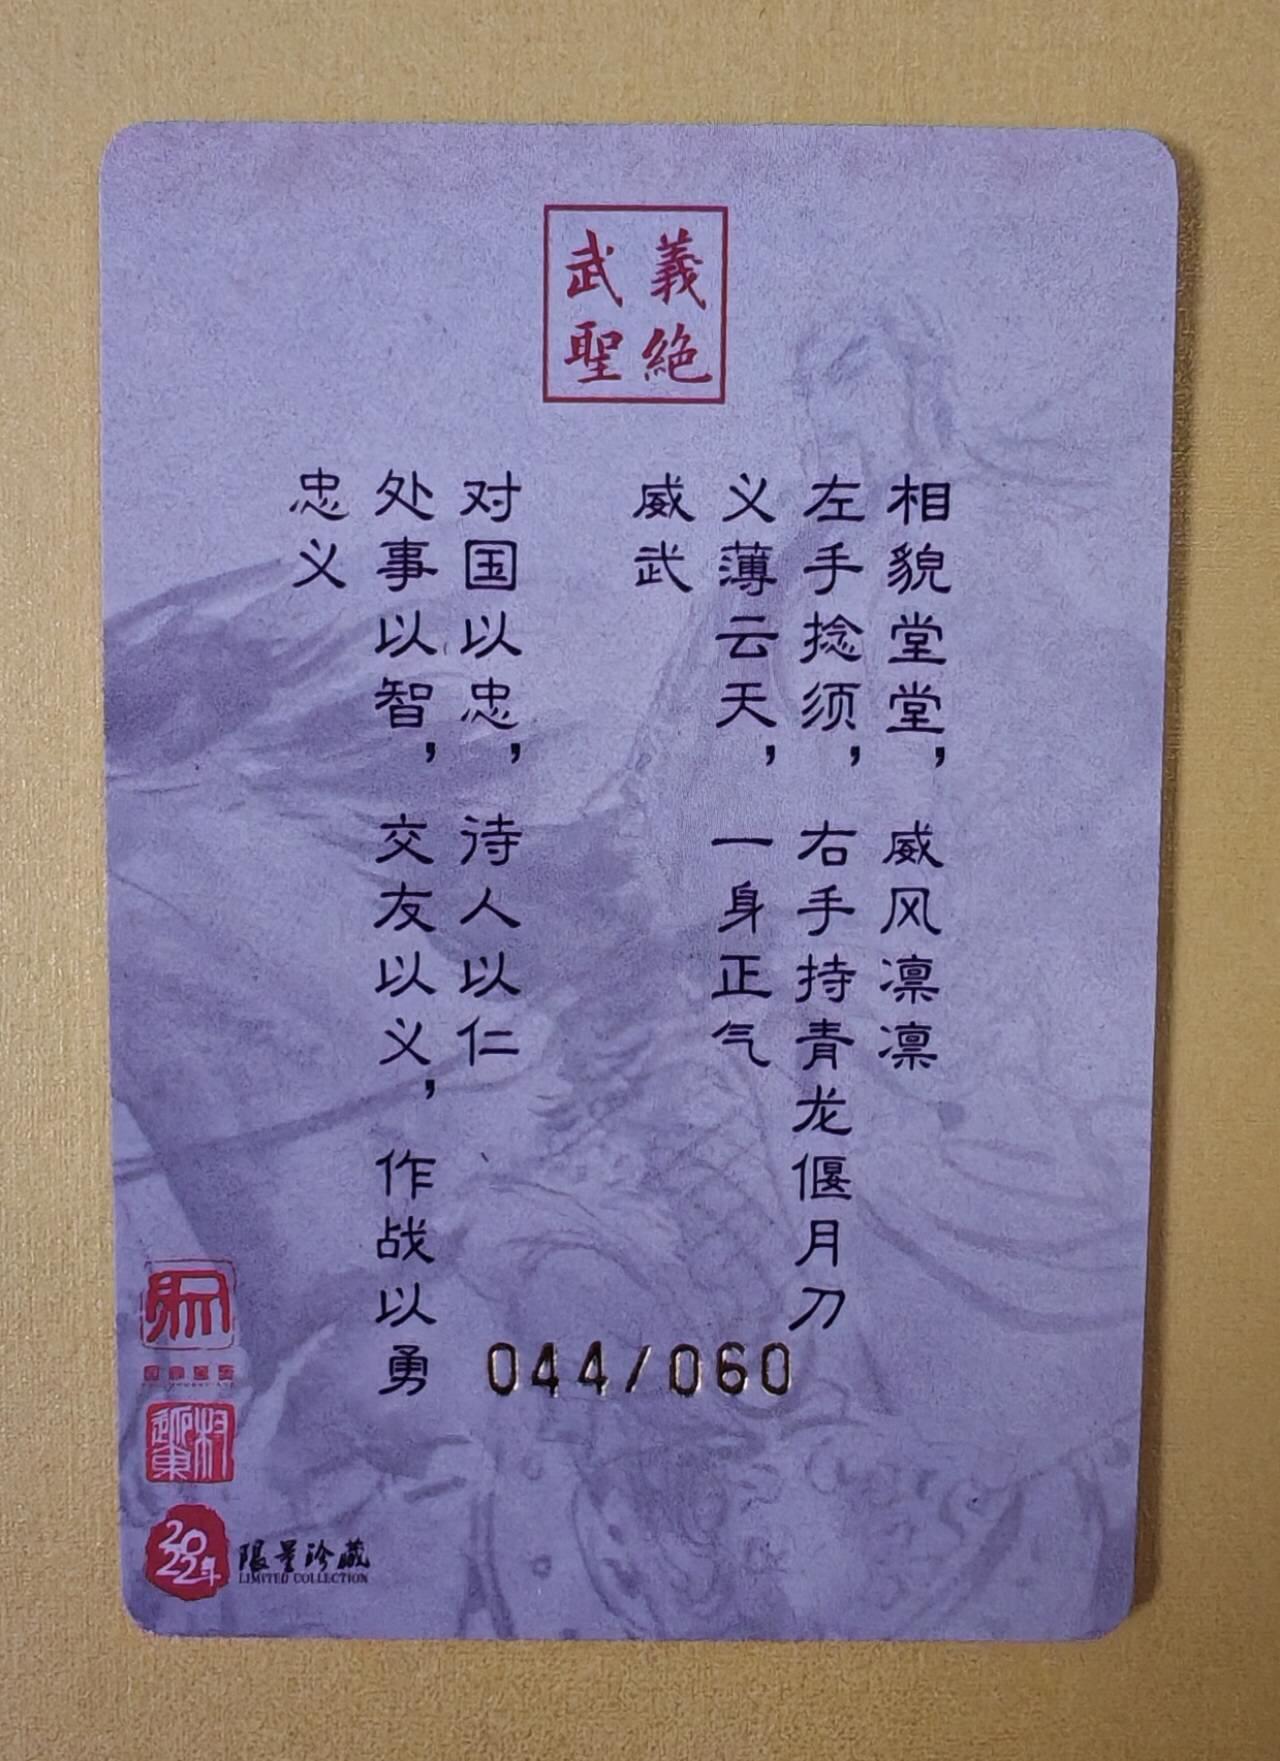 義絶
武聖
相貌堂堂，威风凛凛
左手捻须，右手持青龙偃月刀
义薄云天，一身正气
威武
对国以忠，待人以仁
处事以智，交友以义，作战以勇
忠义
044/060
2022年
限量珍藏
LIMITED COLLECTION